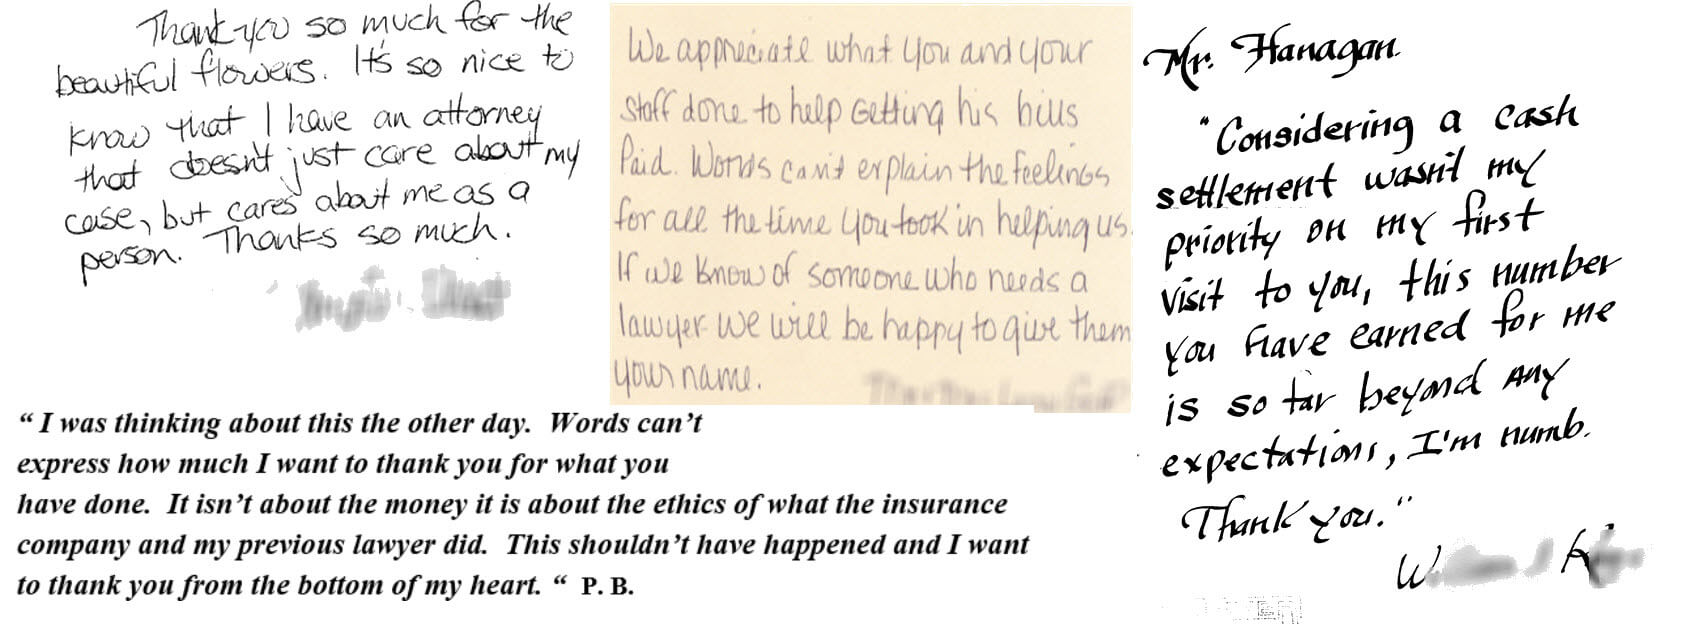 Thank you so much for the
beautiful flowers. It's so nice to
know that I have an attorney
that doesn't just care about my
case, but cares about me as a
person. Thanks so much.
We appreciate what you and your
staff done to help Getting his bills
Paid. Words can't explain the feelings
for all the time you took in helping us.
If we know of someone who needs a
lawyer we will be happy to give them
your name.
Mr. Hanagan.
"Considering a cash
settlement wasn't my
priority on my first
visit to you, this number
you have earned for me
is so far beyond any
expectations, I'm numb.
Thank you."
“ I was thinking about this the other day.  Words can’t
express how much I want to thank you for what you
have done.  It isn’t about the money it is about the ethics of what the insurance
company and my previous lawyer did.  This shouldn’t have happened and I want
to thank you from the bottom of my heart. “  P. B.